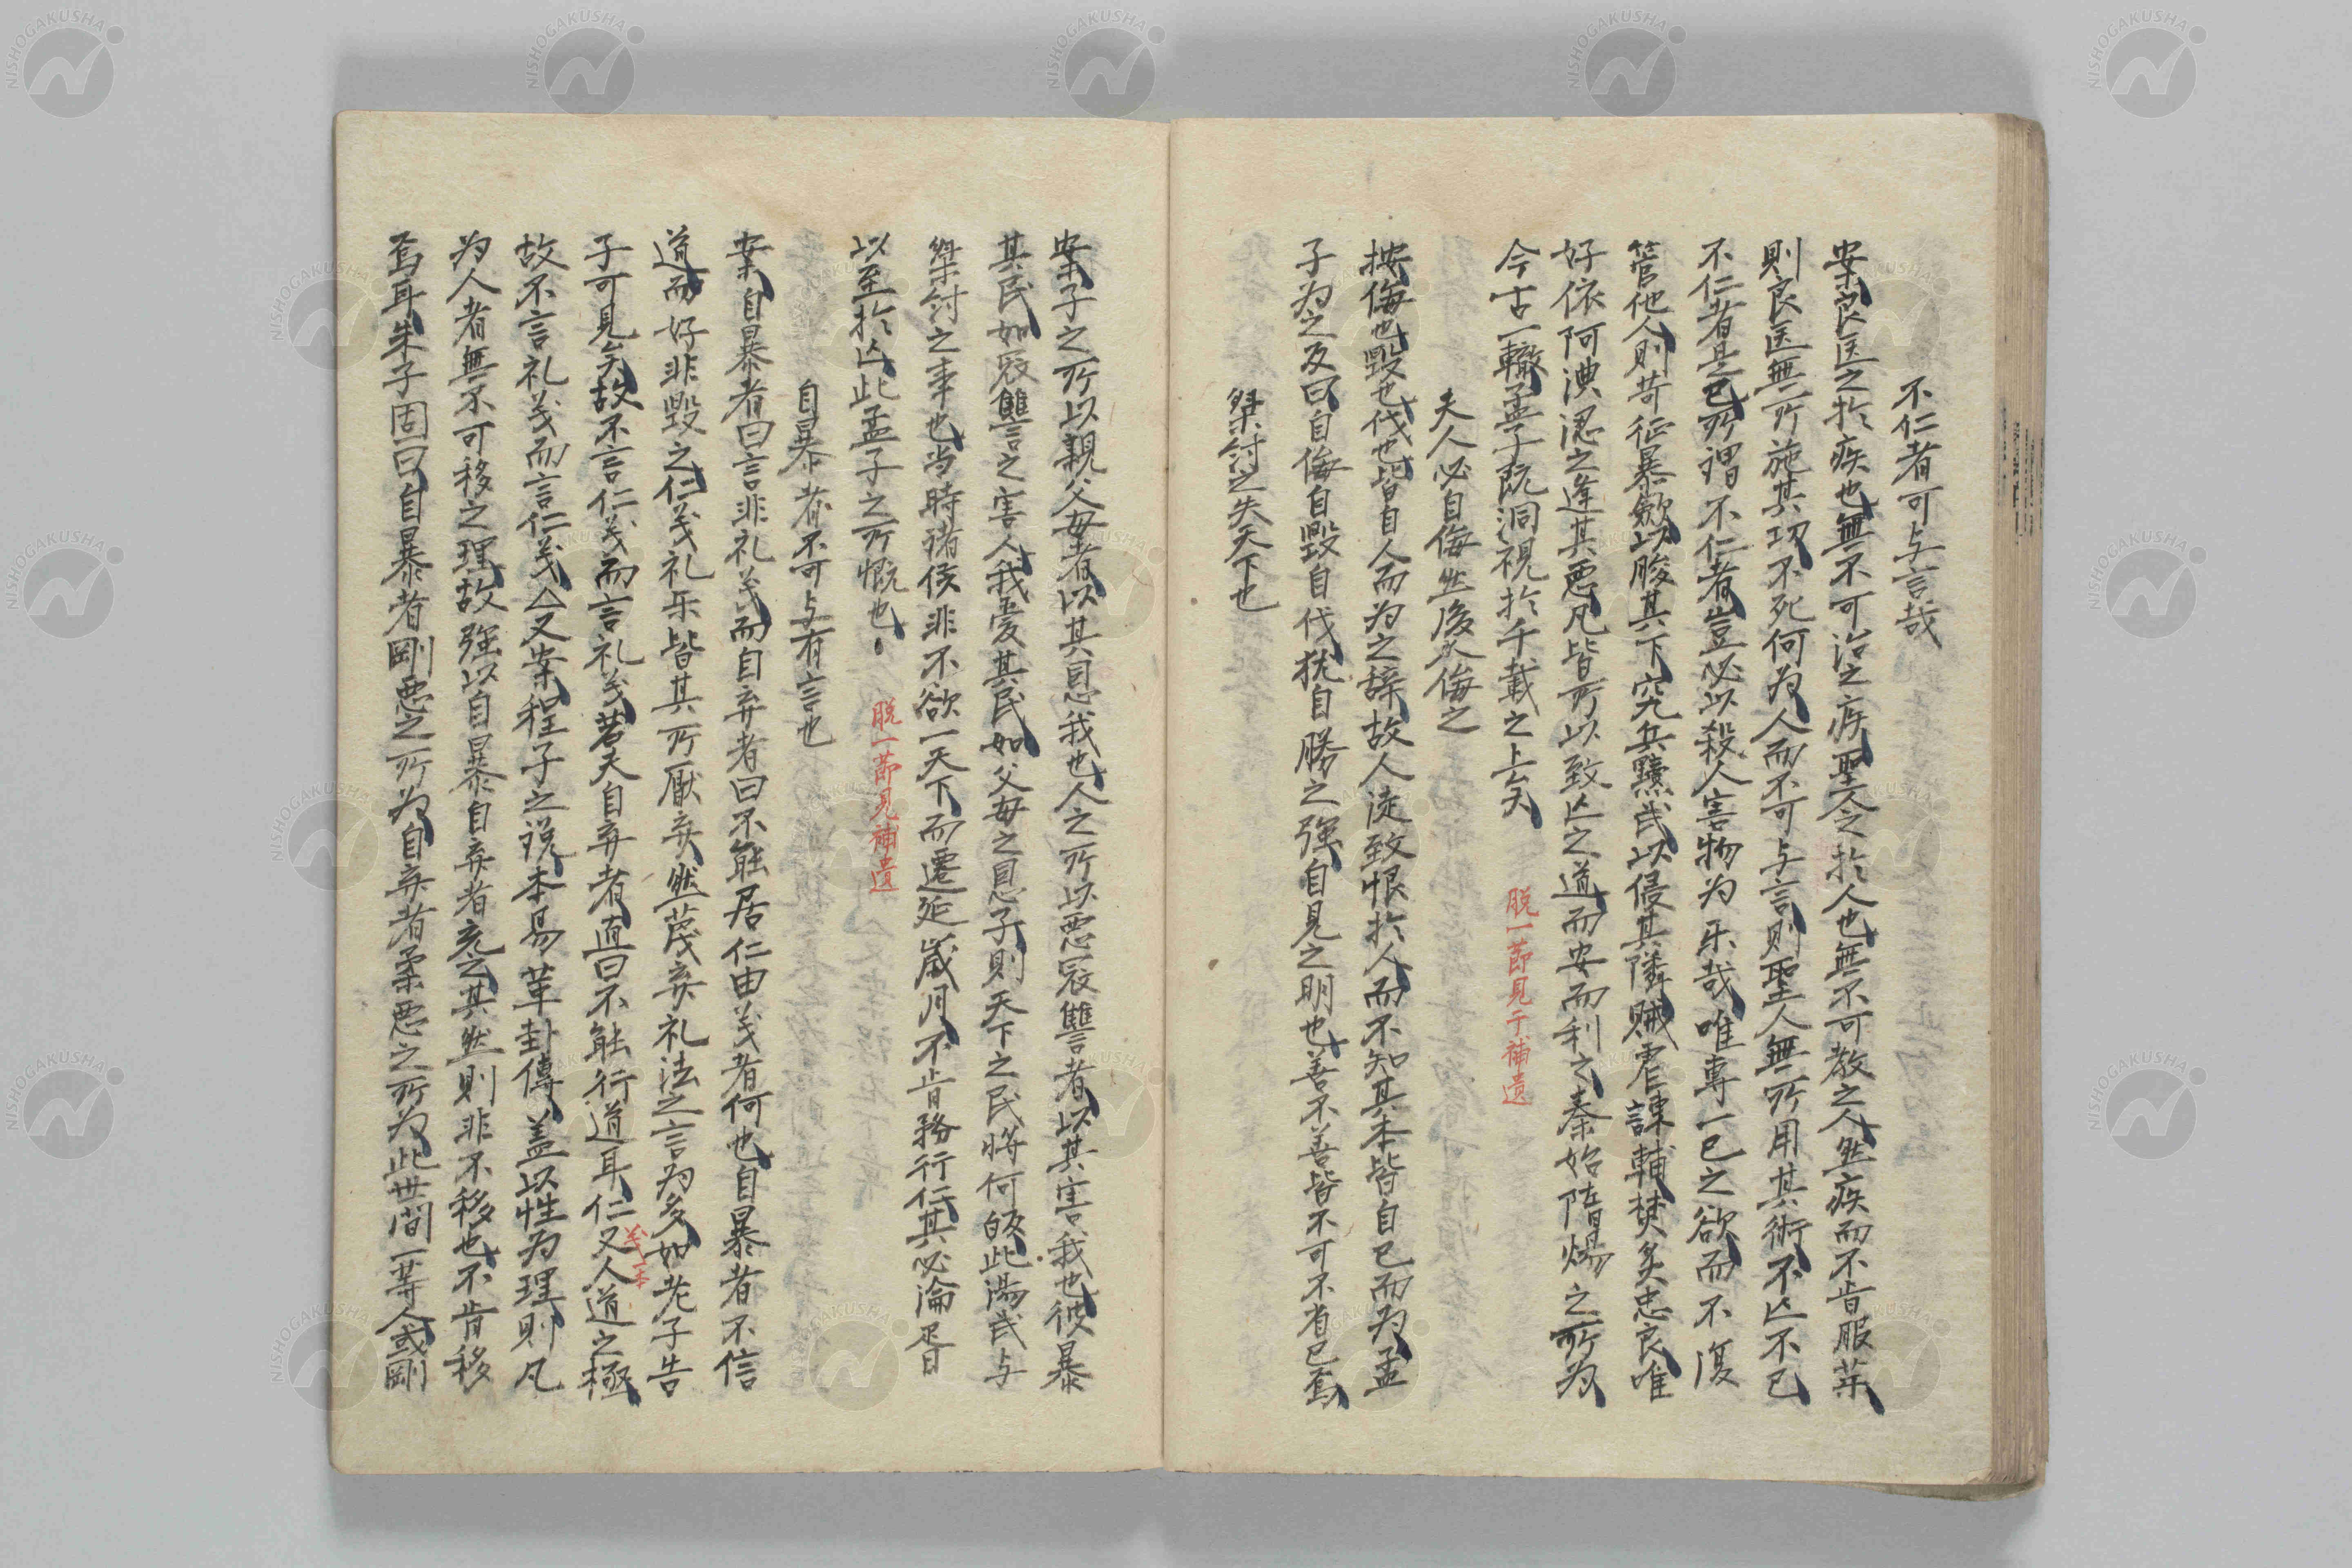 不仁者可与言哉
案良医之於疾也無不可治之疾聖人之於人也無不可教之人然疾而不肯服薬
則良医無所施其功不死何為人而不可与言則聖人無所用其術不亾不已
不仁者是已所謂不仁者豈必以殺人害物為乐哉唯専一己之欲而不復
管他人則苛征暴斂以朘其下究兵黷武以侵其隣賊虐諌輔焚炙忠良唯
好依阿淟涊之逢其悪凡皆所以致亾之道而安而利之秦始隋煬之所為
今古一轍孟子既洞視於千載之上矣 脱一節見于補遺
夫人必自侮然後人侮之
按侮也毀也伐也皆自人而為之辞故人徒致恨於人而不知其本皆自己而為孟
子為之反曰自侮自毀自伐猶自勝之強自見之明也善不善皆不可不省己焉
桀紂之失天下也
案子之所以親父母者以其恩我也人之所以悪寇讐者以其害我也彼暴
其民如寇讐之害人我愛其民如父母之恩子則天下之民将何皈此湯武与
桀紂之事也当時諸侯非不欲一天下而遷延歳月不肯務行仁其必淪胥
以至於亾此孟子之所慨也 脱一節見補遺
自暴者不可与有言也
案自暴者曰言非礼義而自弃者曰不能居仁由義者何也自暴者不信
道而好非毀之仁義礼乐皆其所厭弃然蔑弃礼法之言為多如老子告
子可見矣故不言仁義而言礼義若夫自弃者直曰不能行道耳仁又人道之極 義一本
故不言礼義而言仁義△又案程子之説本易革卦傳蓋以性為理則凡
為人者無不可移之理故強以自暴自弃者充之其然則非不移也不肯移
焉耳朱子固曰自暴者剛悪之所為自弃者柔悪之所為此世間一等人或剛
NISHOGAKUSHA